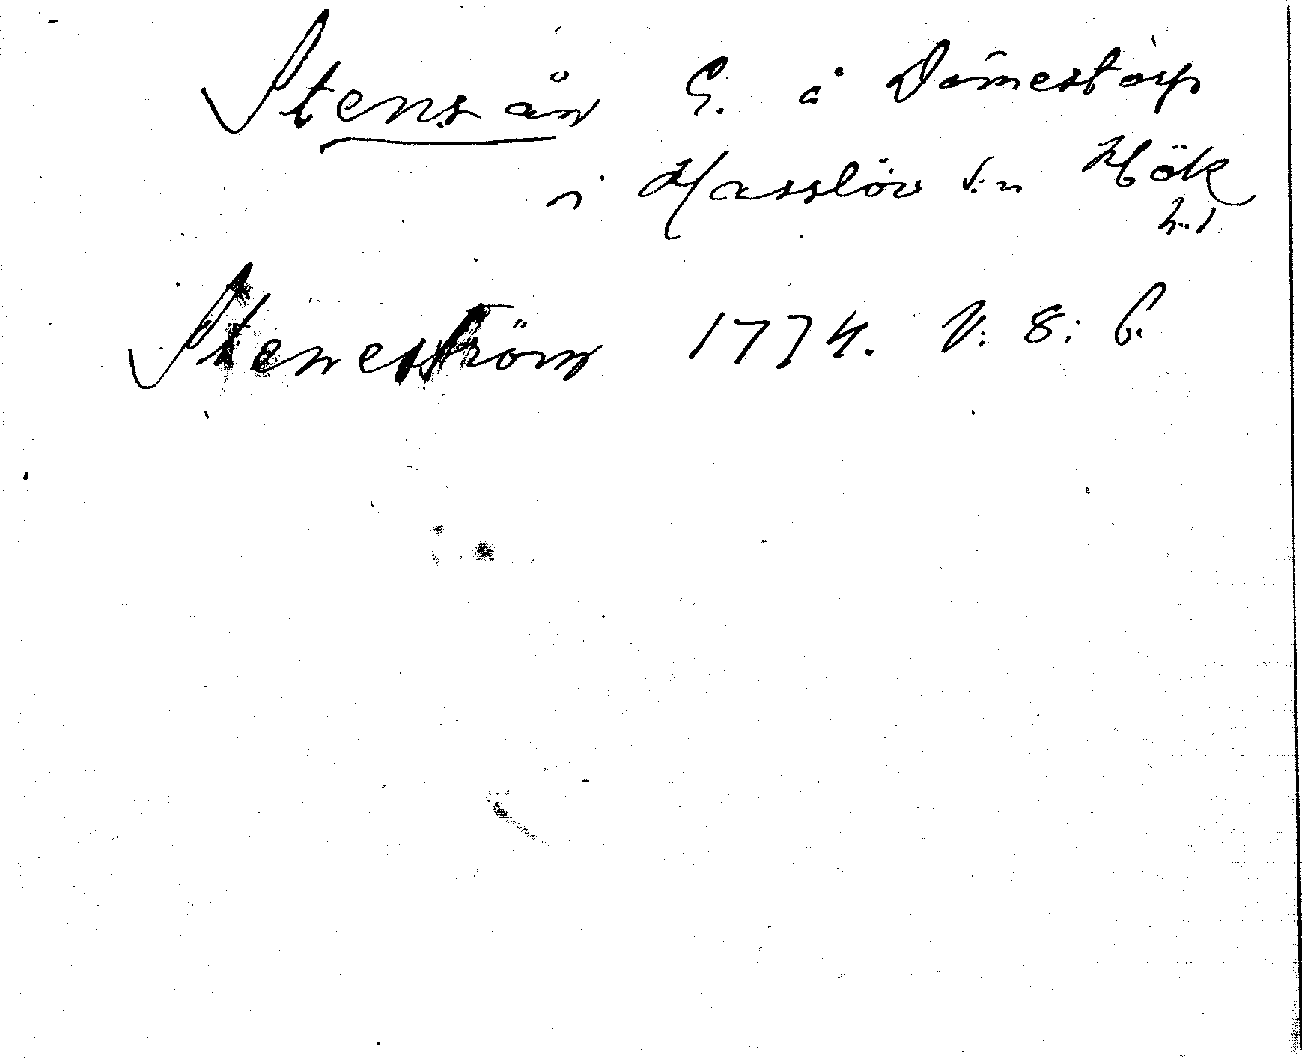 Stensån G. å Dömestorp
i Hasslöv s:n Hök
h.d
Steneström 1774. V: 8: 6.